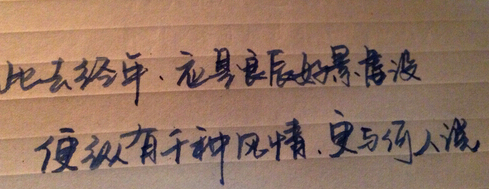 此去经年、应是良辰好景虚设
便纵有千种风情、更与何人说